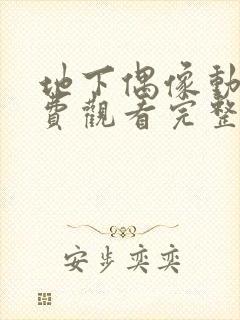 地下偶像動
費觀看完整
安步奕奕